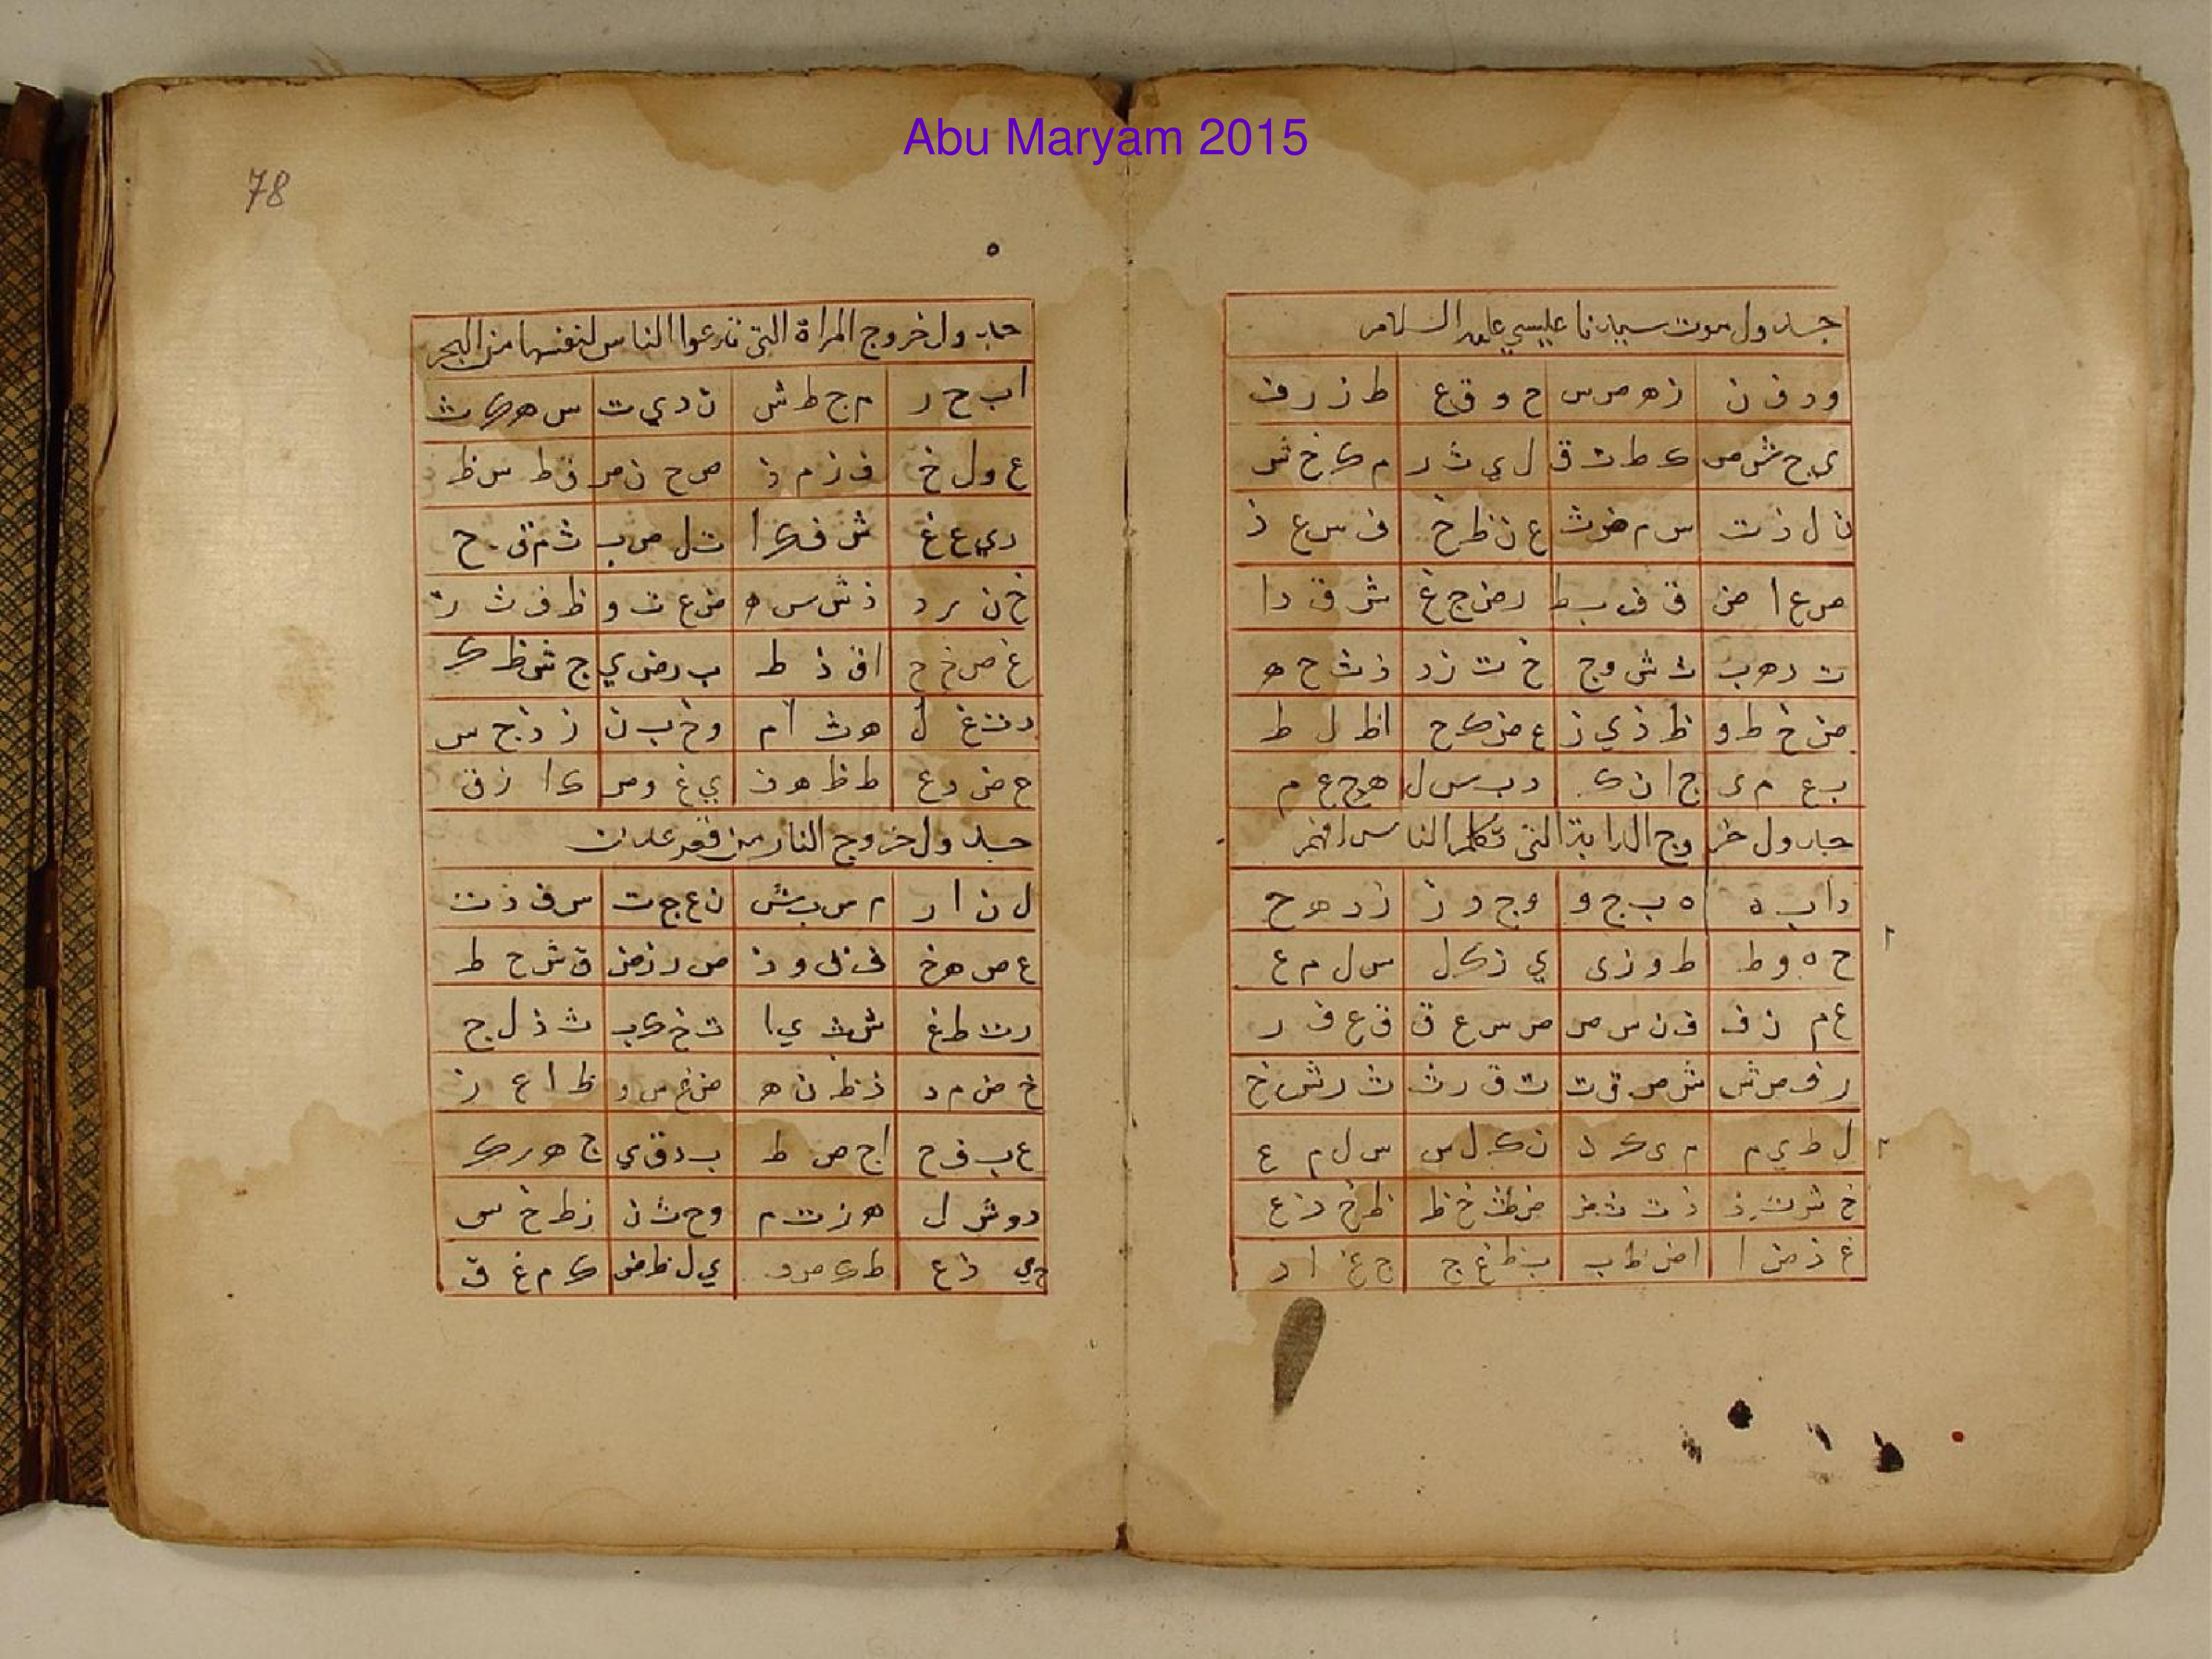 Abu Maryam 2015
جدول موت سيدنا عيسي عليه السلام
و د ف ن ز ه ص س ح و ق ع ط ز ر ف
ي ح ش ص ك ط ت ق ل ي ث ر م ك خ ش
ن ل ذ ت س م ض ث ع ن ظ خ ف س غ ذ
ص ع ا ض ق ف ب ظ ر ص ج غ ش ق د ا
ت ر ه ب ث ش و ج خ ت ز د ذ ث ح ه
ض خ ط و ظ ذ ي ز غ ض ك ح ا ظ ل ط
ب غ م ي ج ا ن ك د ب س ل ه ج ع م
جدول خروج الدابة التي تكلم الناس
د ا ب ه ه ب ج و و ج د ز ز د ه ح
ح ه و ط ط و ز ي ي ز ك ل س ل م ع
ع م ن ف ف ن س ص ص س ع ق ق ع ف ر
ر ف ص ش ش ص ق ت ت ق ر ث ث ر ش خ
ل ط ي م م ي ك ن ن ك ل س س ل م ع
خ ش ت ذ ذ ت ث ض ض ث خ ظ ظ خ ذ غ
غ ذ ض ا ا ض ظ ب ب ظ غ ج ج غ ا د
78
جدول خروج المراة التي تدعوا الناس لنفسها من البحر
ا ب ح ر م ج ط ش ن د ي ت س ه ك ث
ع و ل خ ف ز م ذ ص ح ن ض ق ط س ظ
ر ي ع غ ش ف ك ا ت ل ص ب ث م ق ج
خ ن ر د ذ ش س ه ض ع ت و ظ ف ث ز
غ ص خ ح ا ق ذ ط ب ر ض ي ج ش ظ ك
د ت غ ل ه ث ا م و خ ب ن ز ذ ج س
ح ض د ع ط ظ ه ف ي غ و ص ك ا ز ق
جدول خروج النار من قعر عدن
ل ن ا ر م س ب ش ن ع ج ت س ف د ث
ع ص ه خ ف ق و ذ ص ر ز ض ق ش ح ظ
ر ت ط غ ش ث ي ا ت خ ك ب ث ذ ل ج
خ ض م د ذ ظ ن ه ض غ س و ظ ا ع ز
غ ب ف ح ا ج ص ط ب د ق ي ج ه ر ك
د و ش ل ه ز ت م و ح ث ن ز ط خ س
ح ي ذ ع ط ك ض ف ي ل ظ ص ك م غ ق